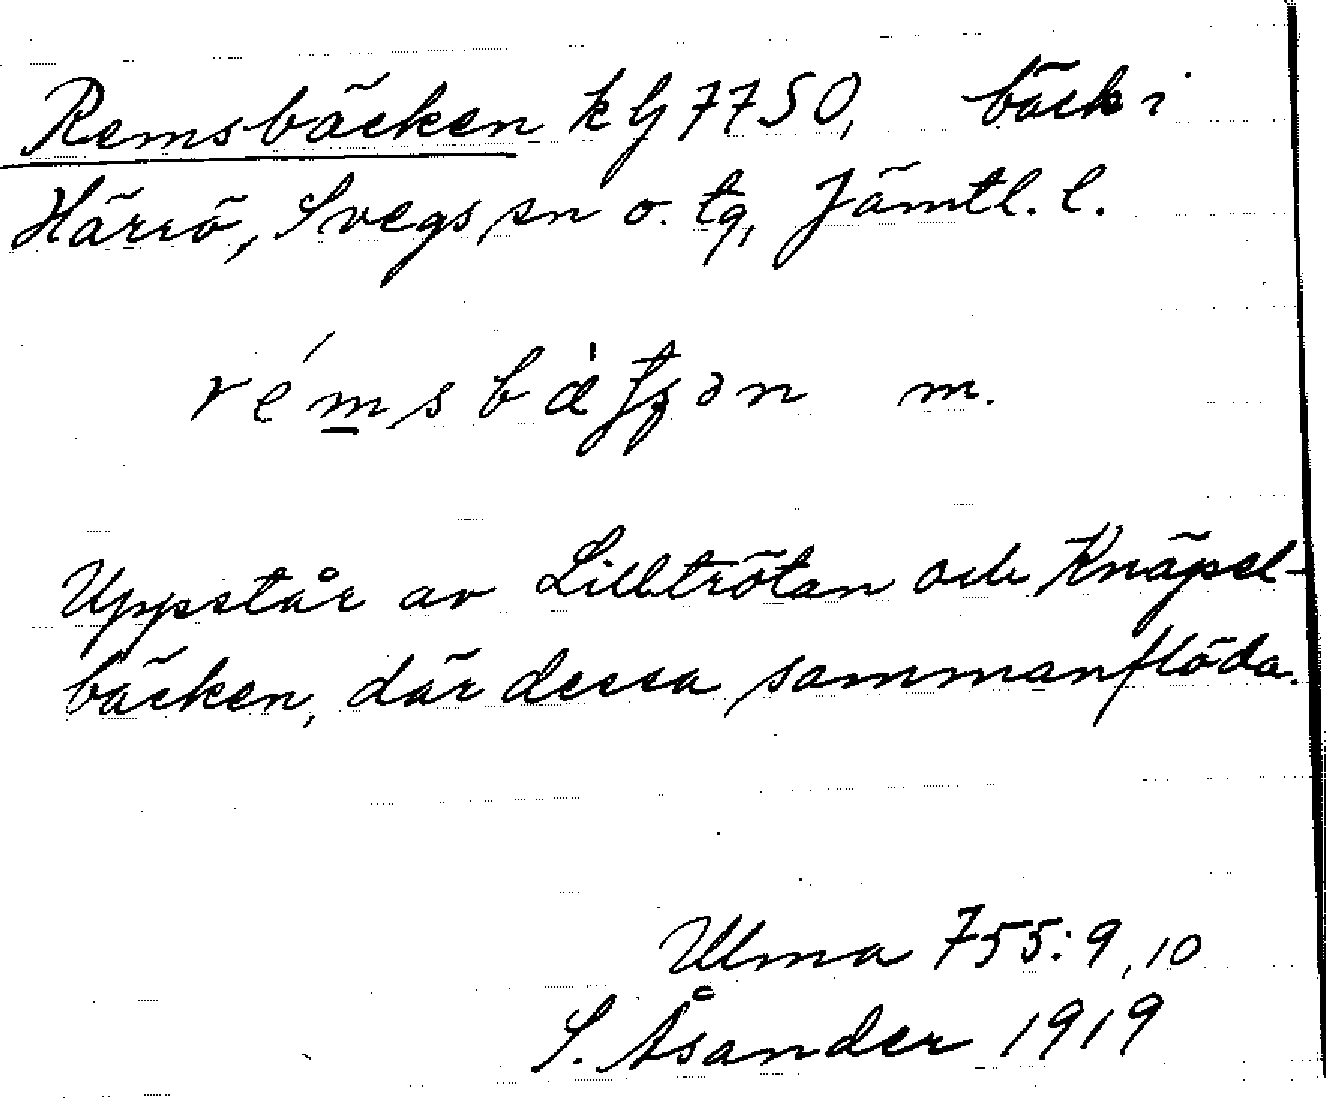 Remsbäcken kg 7750, bäck i
Härrö, Svegs sn o. tg, Jämtl. l.
rémsbä̀tʃən m.
Uppstår av Lilltrötan och Knäpsel-
bäcken, där dessa sammanflöda.
Ulma 755:9,10
S. Åsander 1919